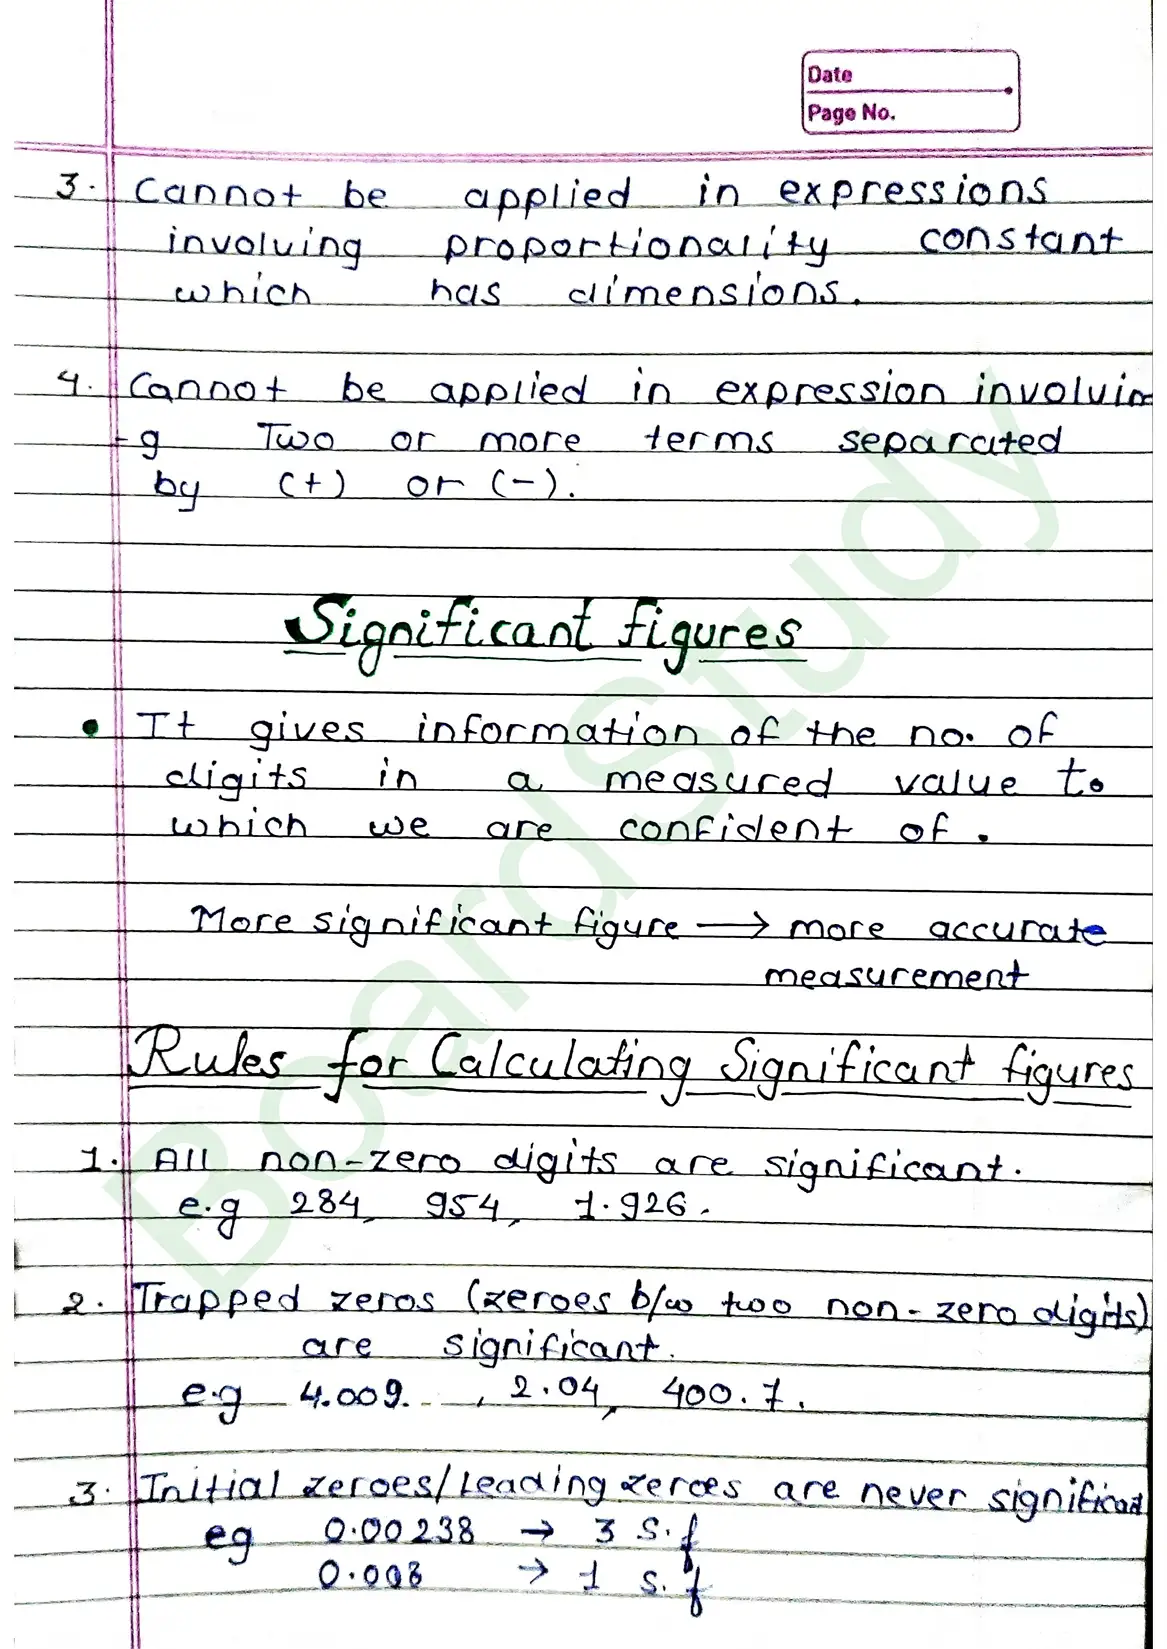 Date
Page No.
3. Cannot be applied in expressions
involving proportionality constant
which has dimensions.
4. Cannot be applied in expression involvin
-g Two or more terms separated
by (+) or (-).
Significant figures
• It gives information of the no. of
digits in a measured value to
which we are confident of.
More significant figure → more accurate
measurement
Rules for Calculating Significant figures
1. All non-zero digits are significant.
e.g 284, 954, 1.926.
2. Trapped zeros (zeroes b/w two non-zero digits)
are significant.
e.g 4.009. , 2.04, 400.7.
3. Initial zeroes/Leading zeroes are never significant
eg 0.00238 → 3 S.f
0.008 → 1 S.f
BoardStudy